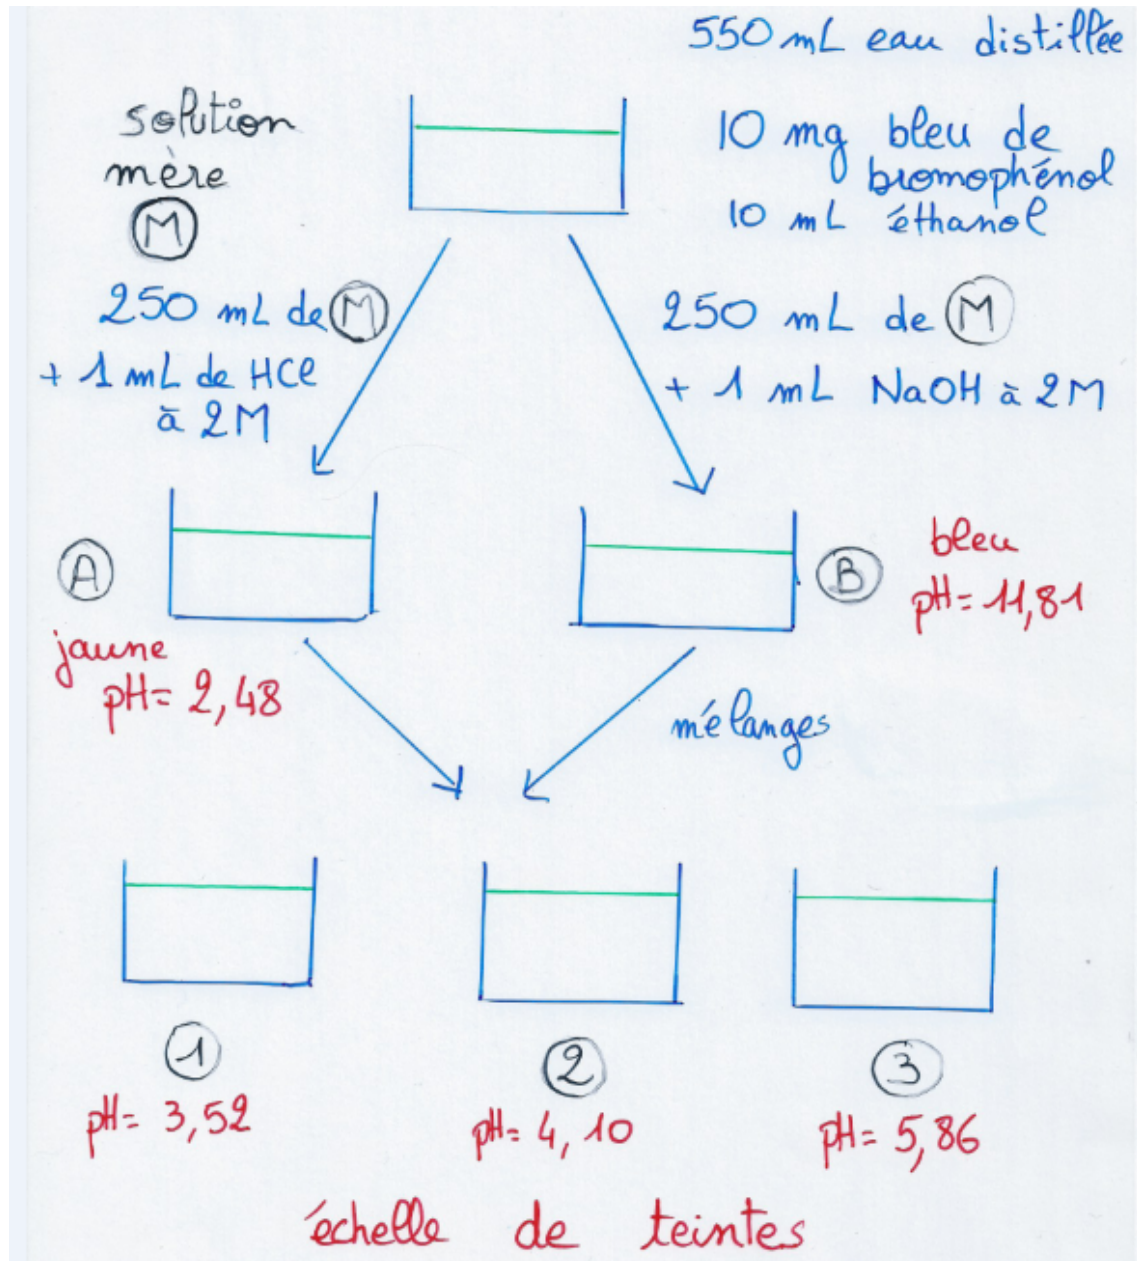 550 mL eau distillée
solution
mère
M
10 mg bleu de
bromophénol
10 mL éthanol
250 mL de M
+ 1 mL de HCl
à 2M
250 mL de M
+ 1 mL NaOH à 2M
A
jaune
pH= 2,48
B
bleu
pH= 11,81
mélanges
1
pH= 3,52
2
pH= 4,10
3
pH= 5,86
échelle de teintes